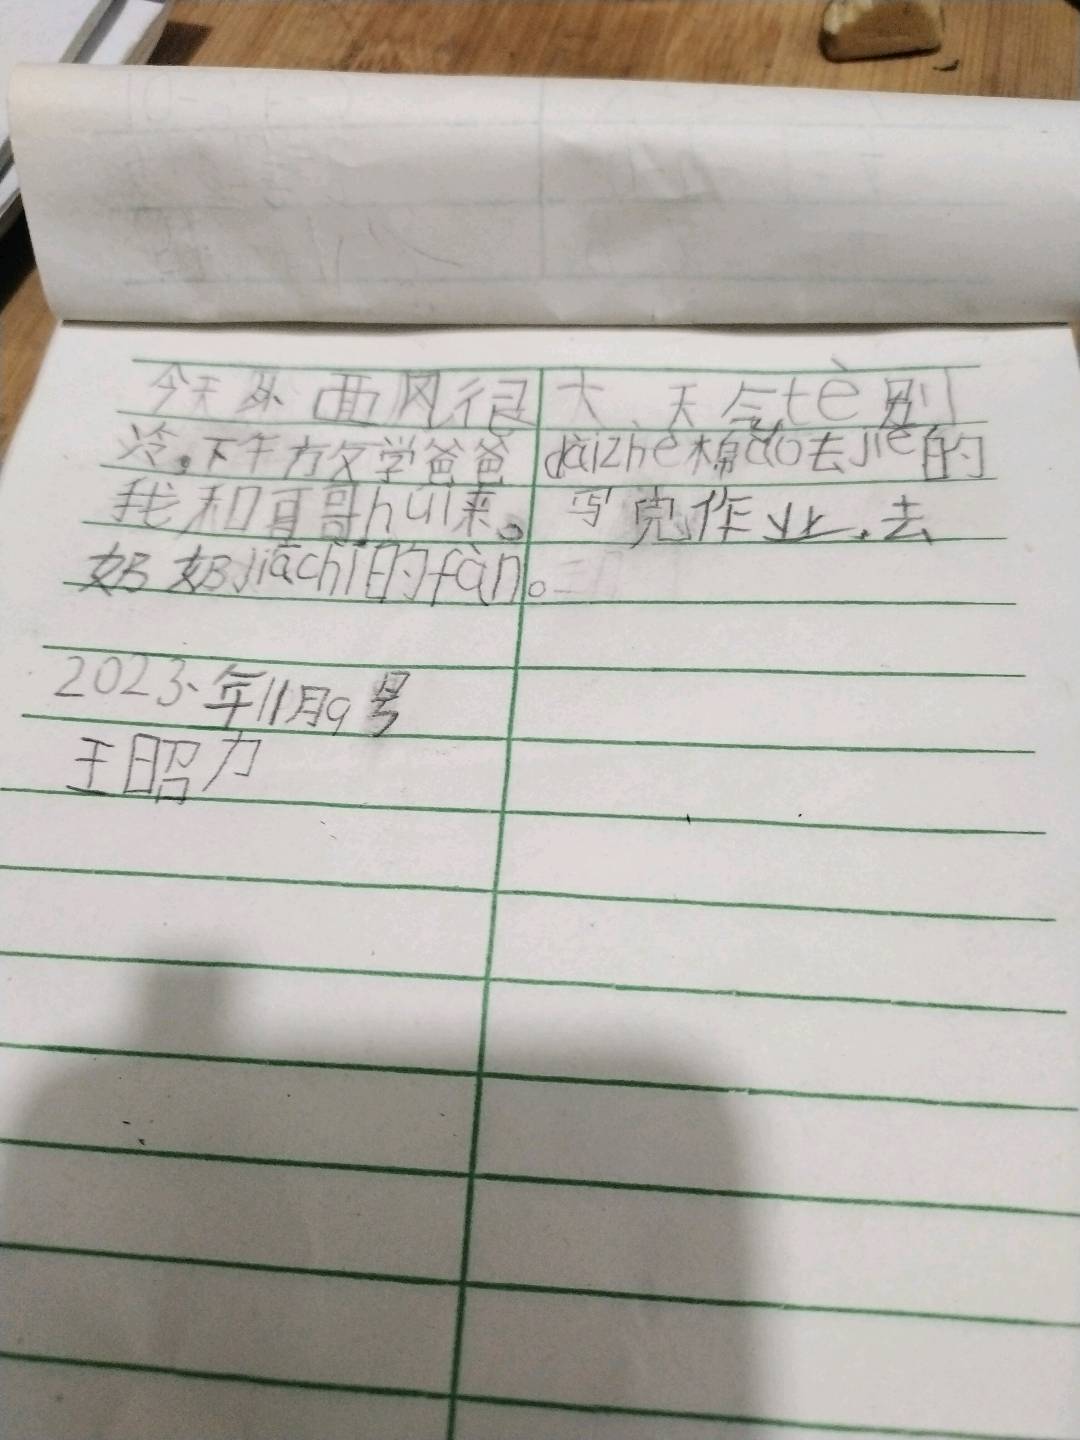 今天外面风很大、天气tè别
冷。下午方文学爸爸dàizhe棉ǎo去jiē的
我和哥哥huí来。写完作业，去
奶奶jiāchī的fàn。
2023、年11月9号
王昭力